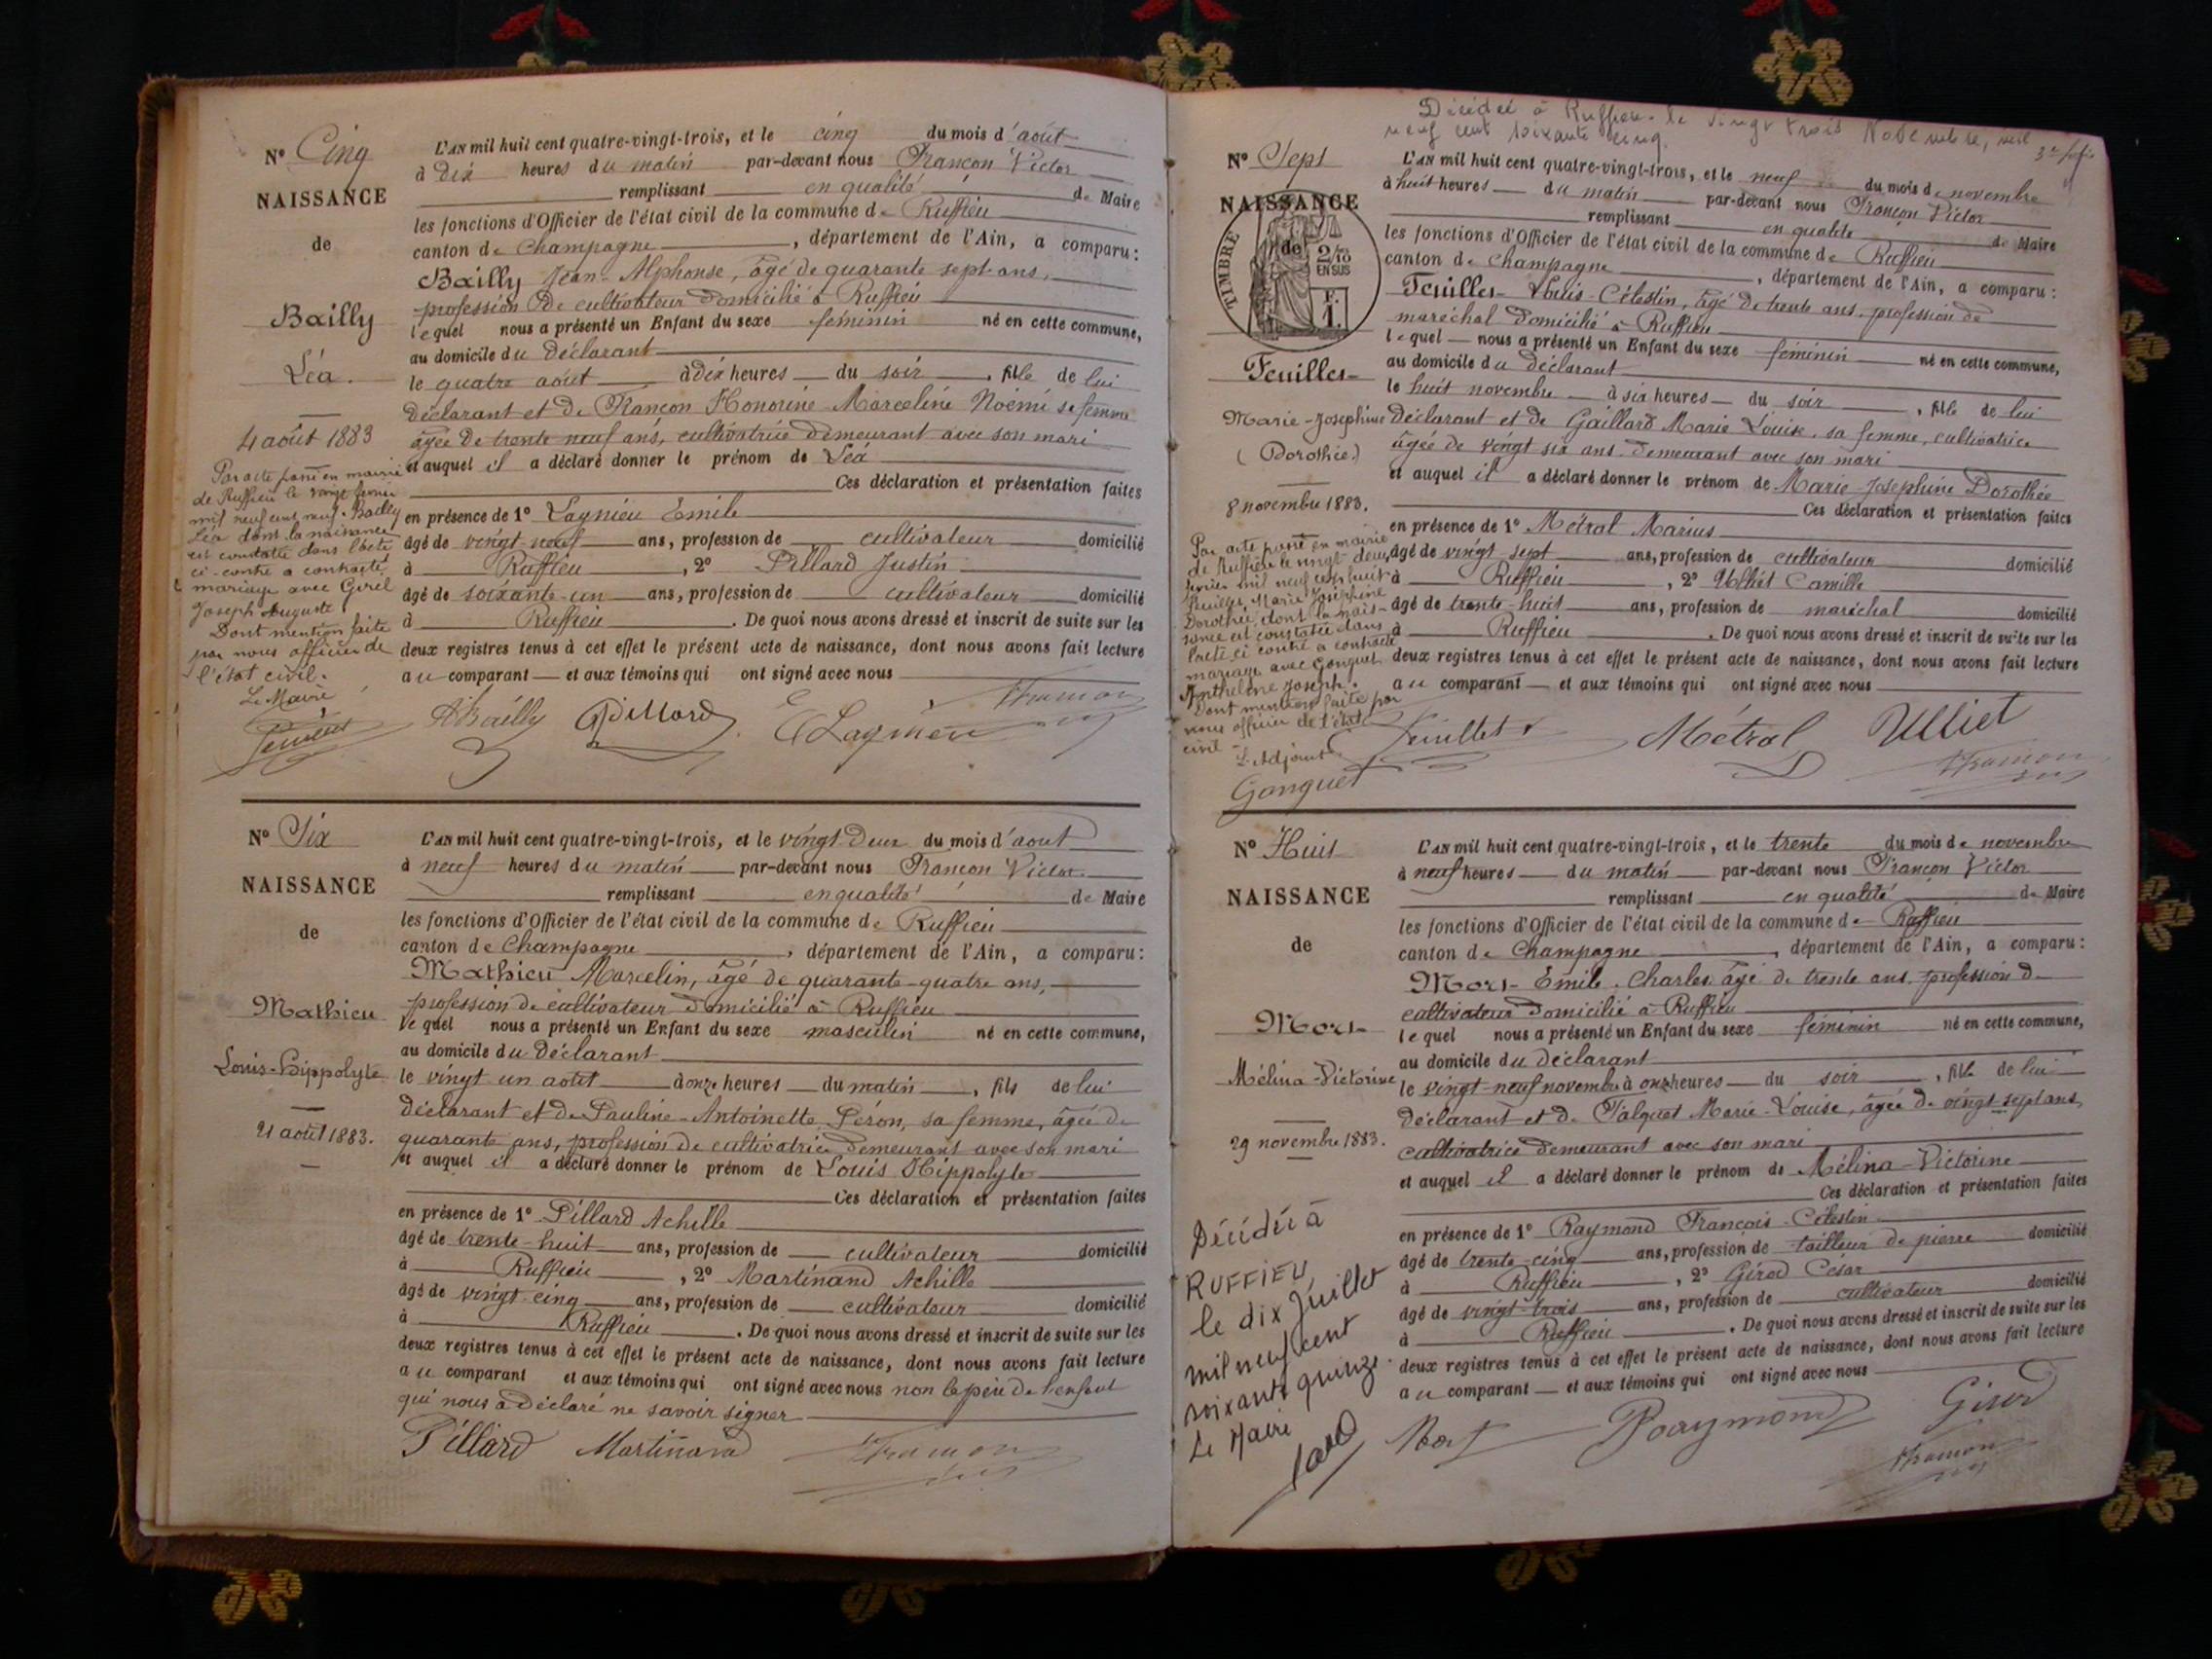 N° Cinq
NAISSANCE
de
Bailly
Léa.
4 août 1883
Par acte passé en mairie
de Ruffieu le vingt février
mil neuf cent neuf. Bailly
Léa dont la naissance
est constatée dans l'acte
ci-contre a contracté
mariage avec Girel
Joseph Auguste.
Dont mention faite
par nous officier de
l'état civil.
Le Maire
L'AN mil huit cent quatre-vingt-trois, et le cinq du mois d'août
à dix heures du matin par-devant nous Françon Victor
remplissant en qualité de Maire
les fonctions d'Officier de l'état civil de la commune de Ruffieu
canton de Champagne, département de l'Ain, a comparu:
Bailly Jean-Alphonse, âgé de quarante sept ans,
profession de cultivateur domicilié à Ruffieu
lequel nous a présenté un Enfant du sexe féminin né en cette commune,
au domicile du déclarant
le quatre août à dix heures du soir, fille de lui
déclarant et de Françon Honorine Marceline Noémi sa femme
âgée de trente neuf ans, cultivatrice demeurant avec son mari
et auquel il a déclaré donner le prénom de Léa
Ces déclaration et présentation faites
en présence de 1° Laynieu Emile
âgé de vingt-neuf ans, profession de cultivateur domicilié
à Ruffieu, 2° Pillard Justin
âgé de soixante-un ans, profession de cultivateur domicilié
à Ruffieu. De quoi nous avons dressé et inscrit de suite sur les
deux registres tenus à cet effet le présent acte de naissance, dont nous avons fait lecture
au comparant et aux témoins qui ont signé avec nous
ABailly Pillard E Laynieu VFrançon
N° Six
NAISSANCE
de
Mathieu
Louis-Hippolyte
21 août 1883.
L'AN mil huit cent quatre-vingt-trois, et le vingt-deux du mois d'août
à neuf heures du matin par-devant nous Françon Victor
remplissant en qualité de Maire
les fonctions d'Officier de l'état civil de la commune de Ruffieu
canton de Champagne, département de l'Ain, a comparu:
Mathieu Marcelin, âgé de quarante-quatre ans,
profession de cultivateur domicilié à Ruffieu
lequel nous a présenté un Enfant du sexe masculin né en cette commune,
au domicile du déclarant
le vingt un août à onze heures du matin, fils de lui
déclarant et de Pauline-Antoinette Péron, sa femme, âgée de
quarante ans, profession de cultivatrice demeurant avec son mari
et auquel il a déclaré donner le prénom de Louis Hippolyte
Ces déclaration et présentation faites
en présence de 1° Pillard Achille
âgé de trente-huit ans, profession de cultivateur domicilié
à Ruffieu, 2° Martinand Achille
âgé de vingt-cinq ans, profession de cultivateur domicilié
à Ruffieu. De quoi nous avons dressé et inscrit de suite sur les
deux registres tenus à cet effet le présent acte de naissance, dont nous avons fait lecture
au comparant et aux témoins qui ont signé avec nous non le père de l'enfant
qui nous a déclaré ne savoir signer
Pillard Martinand VFrançon
Décédée à Ruffieu le vingt trois Novembre, mil
neuf cent soixante cinq.
N° Sept
NAISSANCE
de
TIMBRE
2/10
EN SUS
F.
1.
Feuillet
Marie-Joséphine
(Dorothée)
8 novembre 1883.
Par acte passé en mairie
de Ruffieu le vingt deux
février mil neuf cent huit
Feuillet Marie Joséphine
Dorothée, dont la nais-
sance est constatée dans
l'acte ci contre a contracté
mariage avec Gonguet
Anthelme Joseph.
Dont mention faite par
nous officier de l'état
civil
L'Adjoint
Gonguet
L'AN mil huit cent quatre-vingt-trois, et le neuf du mois de novembre
à huit heures du matin par-devant nous Françon Victor
remplissant en qualité de Maire
les fonctions d'Officier de l'état civil de la commune de Ruffieu
canton de Champagne, département de l'Ain, a comparu:
Feuillet Louis-Célestin, âgé de trente ans, profession de
maréchal domicilié à Ruffieu
lequel nous a présenté un Enfant du sexe féminin né en cette commune,
au domicile du déclarant
le huit novembre à six heures du soir, fille de lui
déclarant et de Gaillard Marie Louise, sa femme, cultivatrice
âgée de vingt six ans demeurant avec son mari
et auquel il a déclaré donner le prénom de Marie-Joséphine Dorothée
Ces déclaration et présentation faites
en présence de 1° Métral Marius
âgé de vingt sept ans, profession de cultivateur domicilié
à Ruffieu, 2° Ulliet Camille
âgé de trente-huit ans, profession de maréchal domicilié
à Ruffieu. De quoi nous avons dressé et inscrit de suite sur les
deux registres tenus à cet effet le présent acte de naissance, dont nous avons fait lecture
au comparant et aux témoins qui ont signé avec nous
Feuillet Métral Ulliet
VFrançon
N° Huit
NAISSANCE
de
Mort
Mélina-Victorine
29 novembre 1883.
Décédée à
RUFFIEU
le dix Juillet
mil neuf cent
soixante quinze.
Le Maire
L'AN mil huit cent quatre-vingt-trois, et le trente du mois de novembre
à neuf heures du matin par-devant nous Françon Victor
remplissant en qualité de Maire
les fonctions d'Officier de l'état civil de la commune de Ruffieu
canton de Champagne, département de l'Ain, a comparu:
Mort Emile-Charles âgé de trente ans, profession de
cultivateur domicilié à Ruffieu
lequel nous a présenté un Enfant du sexe féminin né en cette commune,
au domicile du déclarant
le vingt-neuf novembre à onze heures du soir, fille de lui
déclarant et de Falquet Marie-Louise, âgée de vingt-sept ans,
cultivatrice demeurant avec son mari
et auquel il a déclaré donner le prénom de Mélina-Victorine
Ces déclaration et présentation faites
en présence de 1° Raymond François-Célestin
âgé de trente-cinq ans, profession de tailleur de pierre domicilié
à Ruffieu, 2° Girod César
âgé de vingt-trois ans, profession de cultivateur domicilié
à Ruffieu. De quoi nous avons dressé et inscrit de suite sur les
deux registres tenus à cet effet le présent acte de naissance, dont nous avons fait lecture
au comparant et aux témoins qui ont signé avec nous
Mort Raymond Girod
VFrançon